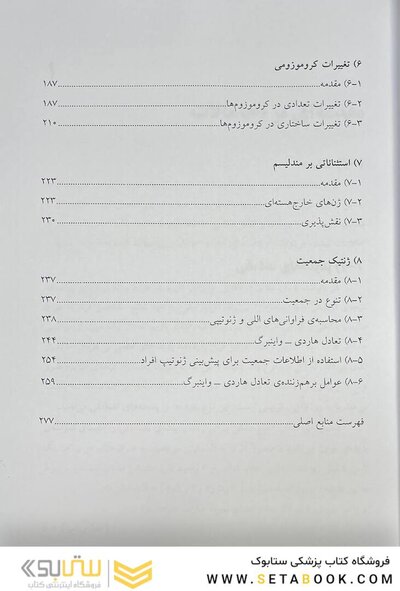 ۶) تغییرات کروموزومی
۶-۱) مقدمه ۱۸۷
۶-۲) تغییرات تعدادی در کروموزوم‌ها ۱۸۷
۶-۳) تغییرات ساختاری در کروموزوم‌ها ۲۱۰
۷) استثنائاتی بر مندلیسم
۷-۱) مقدمه ۲۲۳
۷-۲) ژن‌های خارج‌هسته‌ای ۲۲۳
۷-۳) نقش‌پذیری ۲۳۰
۸) ژنتیک جمعیت
۸-۱) مقدمه ۲۳۷
۸-۲) تنوع در جمعیت ۲۳۷
۸-۳) محاسبه‌ی فراوانی‌های اللی و ژنوتیپی ۲۳۸
۸-۴) تعادل هاردی – واینبرگ ۲۴۴
۸-۵) استفاده از اطلاعات جمعیت برای پیش‌بینی ژنوتیپ افراد ۲۵۴
۸-۶) عوامل برهم‌زننده‌ی تعادل هاردی – واینبرگ ۲۵۹
فهرست منابع اصلی ۲۷۷
فروشگاه کتاب پزشکی ستابوک
WWW.SETABOOK.COM
ستابوک
فروشگاه اینترنتی کتاب